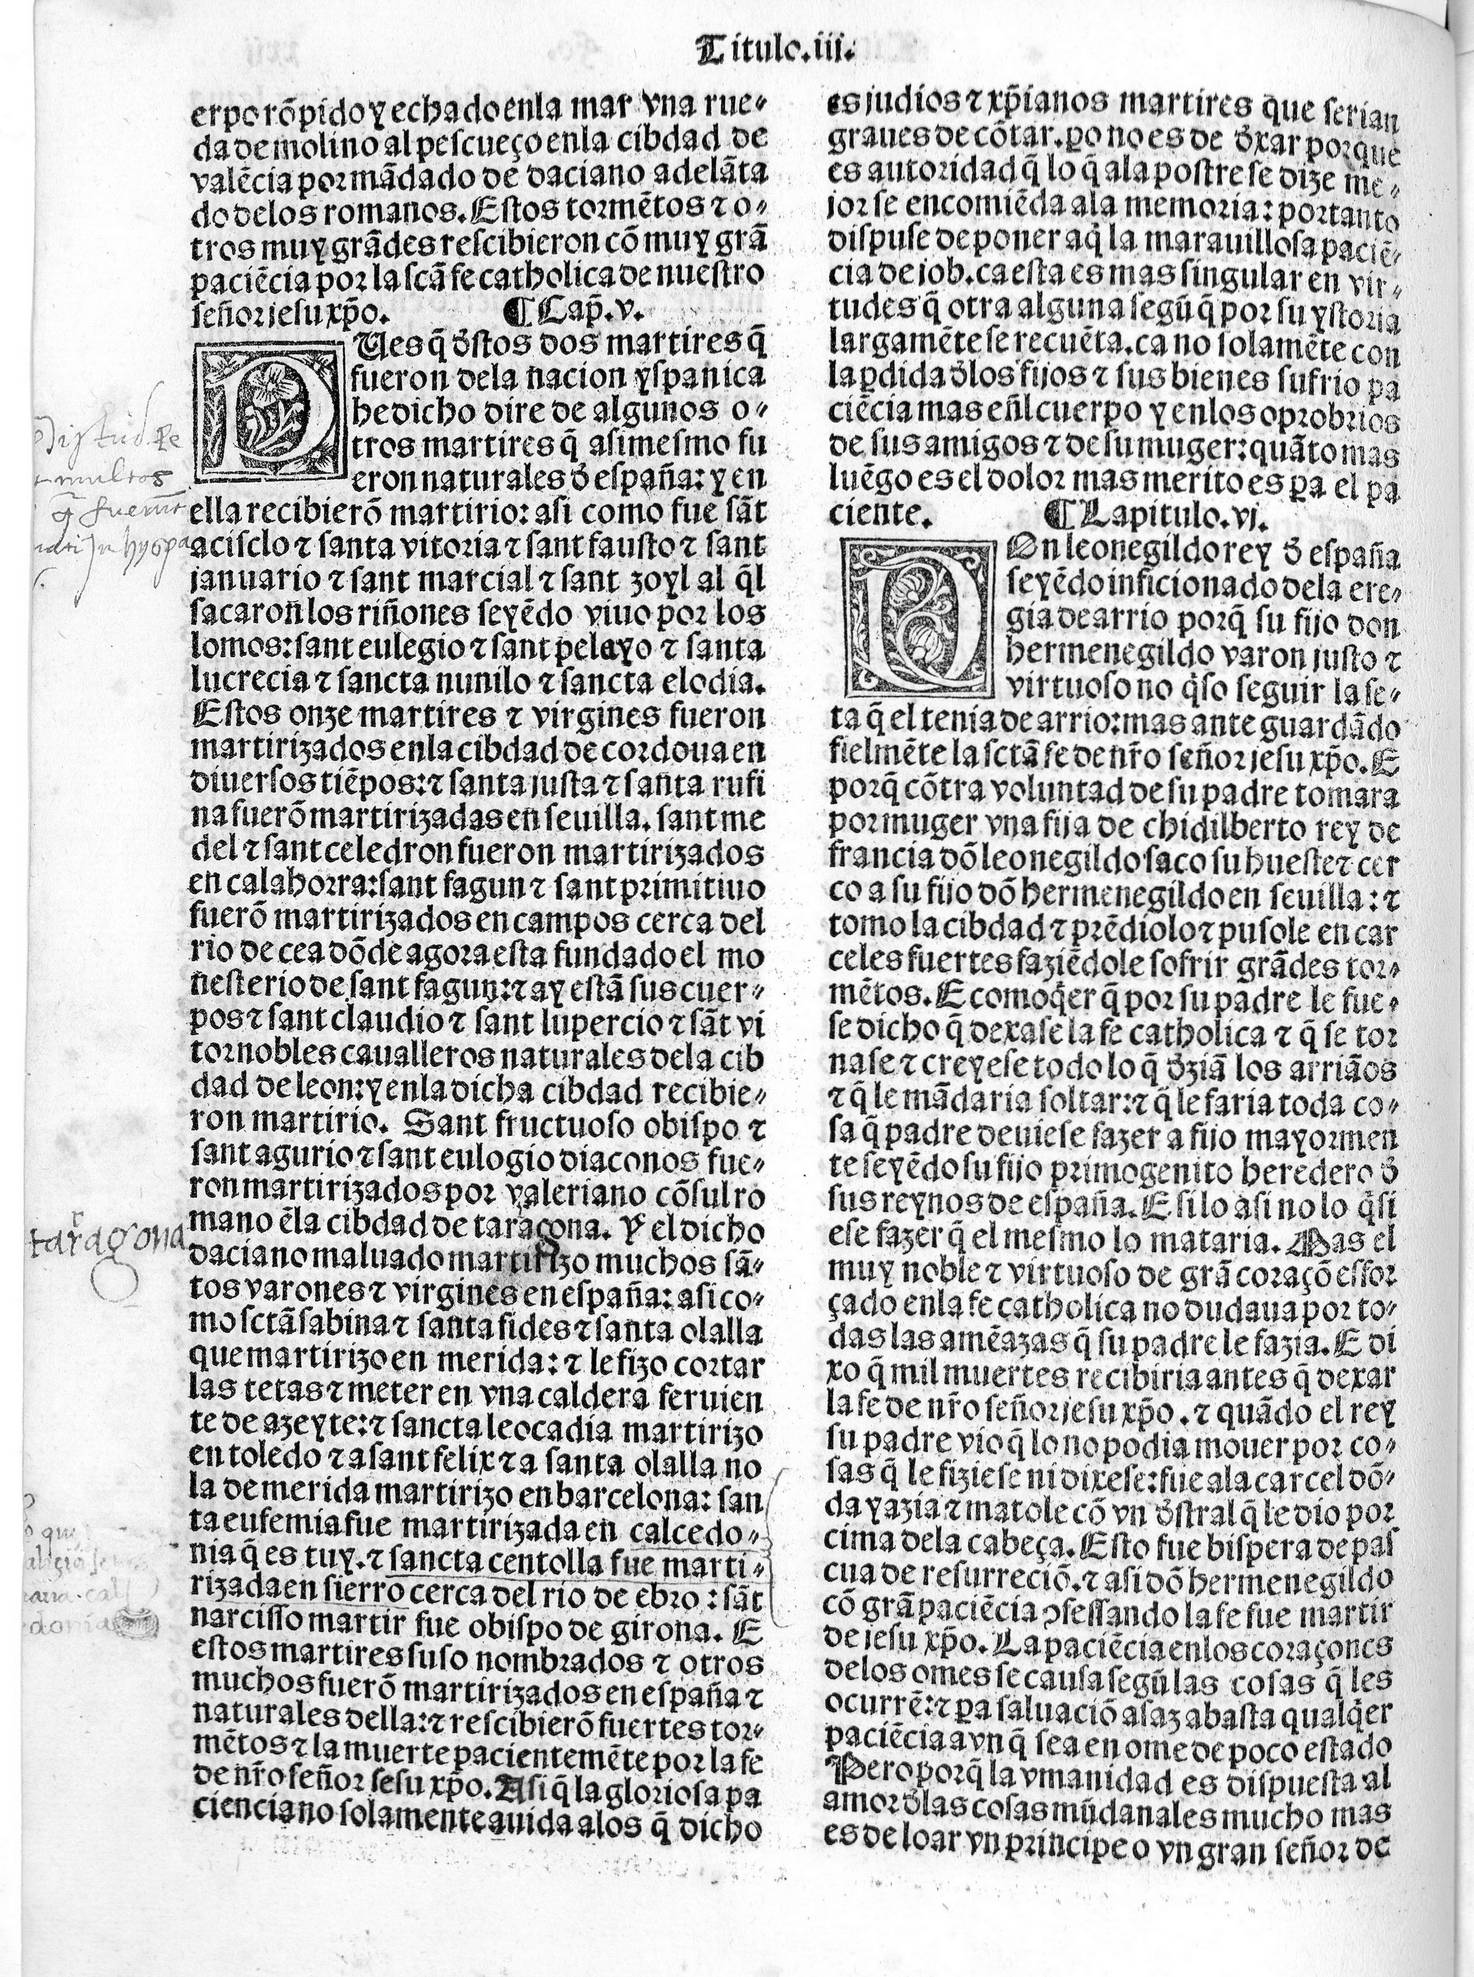 Titulo.iii.
erpo rõpido y echado enla mar vna rue-
da de molino al pescueço enla cibdad de
valẽcia por mãdado de daciano adelãta
do delos romanos. Estos tormẽtos ⁊ o-
tros muy grãdes rescibieron cõ muy grã
paciẽcia por la scã fe catholica de nuestro
señor jesu xp̃o. ¶ Cap̃.v.
PUes q̃ d̃stos dos martires q̃
fueron dela nacion yspanica
he dicho dire de algunos o-
tros martires q̃ asimesmo fu
eron naturales d̃ españa: y en
ella recibierõ martirio: asi como fue sãt
acisclo ⁊ santa vitoria ⁊ sant fausto ⁊ sant
januario ⁊ sant marcial ⁊ sant zoyl al q̃l
sacaron los riñones seyẽdo viuo por los
lomos: sant eulegio ⁊ sant pelayo ⁊ santa
lucrecia ⁊ sancta nunilo ⁊ sancta elodia.
Estos onze martires ⁊ virgines fueron
martirizados enla cibdad de cordoua en
diuersos tiẽpos: ⁊ santa justa ⁊ santa rufi
na fuerõ martirizadas en seuilla. sant me
del ⁊ sant celedron fueron martirizados
en calahorra: sant fagun ⁊ sant primitiuo
fuerõ martirizados en campos cerca del
rio de cea dõde agora esta fundado el mo
nesterio de sant fagun: ⁊ ay estã sus cuer-
pos ⁊ sant claudio ⁊ sant lupercio ⁊ sãt vi
tor nobles caualleros naturales dela cib
dad de leon: y enla dicha cibdad recibie-
ron martirio. Sant fructuoso obispo ⁊
sant agurio ⁊ sant eulogio diaconos fue-
ron martirizados por valeriano cõsul ro
mano ẽla cibdad de taragona. Y el dicho
daciano maluado martirizo muchos sã-
tos varones ⁊ virgines en españa: asi co-
mo sctã sabina ⁊ santa fides ⁊ santa olalla
que martirizo en merida: ⁊ le fizo cortar
las tetas ⁊ meter en vna caldera feruien
te de azeyte: ⁊ sancta leocadia martirizo
en toledo ⁊ a sant felix ⁊ a santa olalla no
la de merida martirizo en barcelona: san
ta eufemia fue martirizada en calcedo-
nia q̃ es tuy. ⁊ sancta centolla fue marti-
rizada en sierro cerca del rio de ebro: sãt
narcisso martir fue obispo de girona. E
estos martires suso nombrados ⁊ otros
muchos fuerõ martirizados en españa ⁊
naturales della: ⁊ rescibierõ fuertes tor-
mẽtos ⁊ la muerte pacientemẽte por la fe
de nr̃o señor jesu xp̃o. Asi q̃ la gloriosa pa
ciencia no solamente auida alos q̃ dicho
es judios ⁊ xp̃ianos martires que serian
graues de cõtar. ꝑo no es de d̃xar porque
es autoridad q̃ lo q̃ ala postre se dize me-
jor se encomiẽda ala memoria: portanto
dispuse de poner aq̃ la marauillosa paciẽ-
cia de job. ca esta es mas singular en vir-
tudes q̃ otra alguna segũ q̃ por su ystoria
largamẽte se recuẽta. ca no solamẽte con
la ꝑdida d̃los fijos ⁊ sus bienes sufrio pa
ciẽcia mas eñl cuerpo y enlos oprobrios
de sus amigos ⁊ de su muger: quãto mas
luẽgo es el dolor mas merito es ꝑa el pa
ciente. ¶ Capitulo.vj.
DOn leonegildo rey d̃ españa
seyẽdo inficionado dela ere-
gia de arrio porq̃ su fijo don
hermenegildo varon justo ⁊
virtuoso no q̃so seguir la se-
ta q̃ el tenia de arrio: mas ante guardãdo
fielmẽte la sctã fe de nr̃o señor jesu xp̃o. E
porq̃ cõtra voluntad de su padre tomara
por muger vna fija de childilberto rey de
francia dõ leonegildo saco su hueste ⁊ cer
co a su fijo dõ hermenegildo en seuilla: ⁊
tomo la cibdad ⁊ prẽdiolo ⁊ pusole en car
celes fuertes faziẽdole sofrir grãdes tor-
mẽtos. E como q̃er q̃ por su padre le fue-
se dicho q̃ dexase la fe catholica ⁊ q̃ se tor
nase ⁊ creyese todo lo q̃ d̃ziã los arriãos
⁊ q̃ le mãdaria soltar: ⁊ q̃ le faria toda co-
sa q̃ padre deuiese fazer a fijo mayormen
te seyẽdo su fijo primogenito heredero d̃
sus reynos de españa. E si lo asi no lo q̃si
ese fazer q̃ el mesmo lo mataria. Mas el
muy noble ⁊ virtuoso de grã coraçõ esfor
çado enla fe catholica no dudaua por to-
das las amẽazas q̃ su padre le fazia. E di
xo q̃ mil muertes recibiria antes q̃ dexar
la fe de nr̃o señor jesu xp̃o. ⁊ quãdo el rey
su padre vio q̃ lo no podia mouer por co-
sas q̃ le fiziese ni dixese: fue ala carcel dõ-
da yazia ⁊ matole cõ vn d̃stral q̃ le dio por
cima dela cabeça. Esto fue bispera de pas
cua de resurreciõ. ⁊ asi dõ hermenegildo
cõ grã paciẽcia ꝯfessando la fe fue martir
de jesu xp̃o. La paciẽcia enlos coraçones
delos omes se causa segũ las cosas q̃ les
ocurrẽ: ⁊ ꝑa saluaciõ asaz abasta qualq̃er
paciẽcia avn q̃ sea en ome de poco estado
Pero porq̃ la vmanidad es dispuesta al
amor d̃las cosas mũdanales mucho mas
es de loar vn principe o vn gran señor de
multos
q̃ fuerũt
taragona